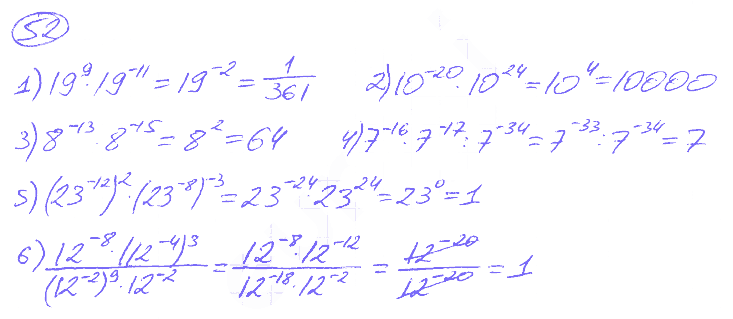 52
1) 19⁹ · 19⁻¹¹ = 19⁻² = 1/361 2) 10⁻²⁰ · 10²⁴ = 10⁴ = 10000
3) 8⁻¹³ · 8⁻¹⁵ = 8² = 64 4) 7⁻¹⁶ · 7⁻¹⁷ : 7⁻³⁴ = 7⁻³³ : 7⁻³⁴ = 7
5) (23⁻¹²)⁻² · (23⁻⁸)⁻³ = 23⁻²⁴ · 23²⁴ = 23⁰ = 1
6) 12⁻⁸ · (12⁻⁴)³ / (12⁻²)⁹ · 12⁻² = 12⁻⁸ · 12⁻¹² / 12⁻¹⁸ · 12⁻² = 12⁻²⁰ / 12⁻²⁰ = 1